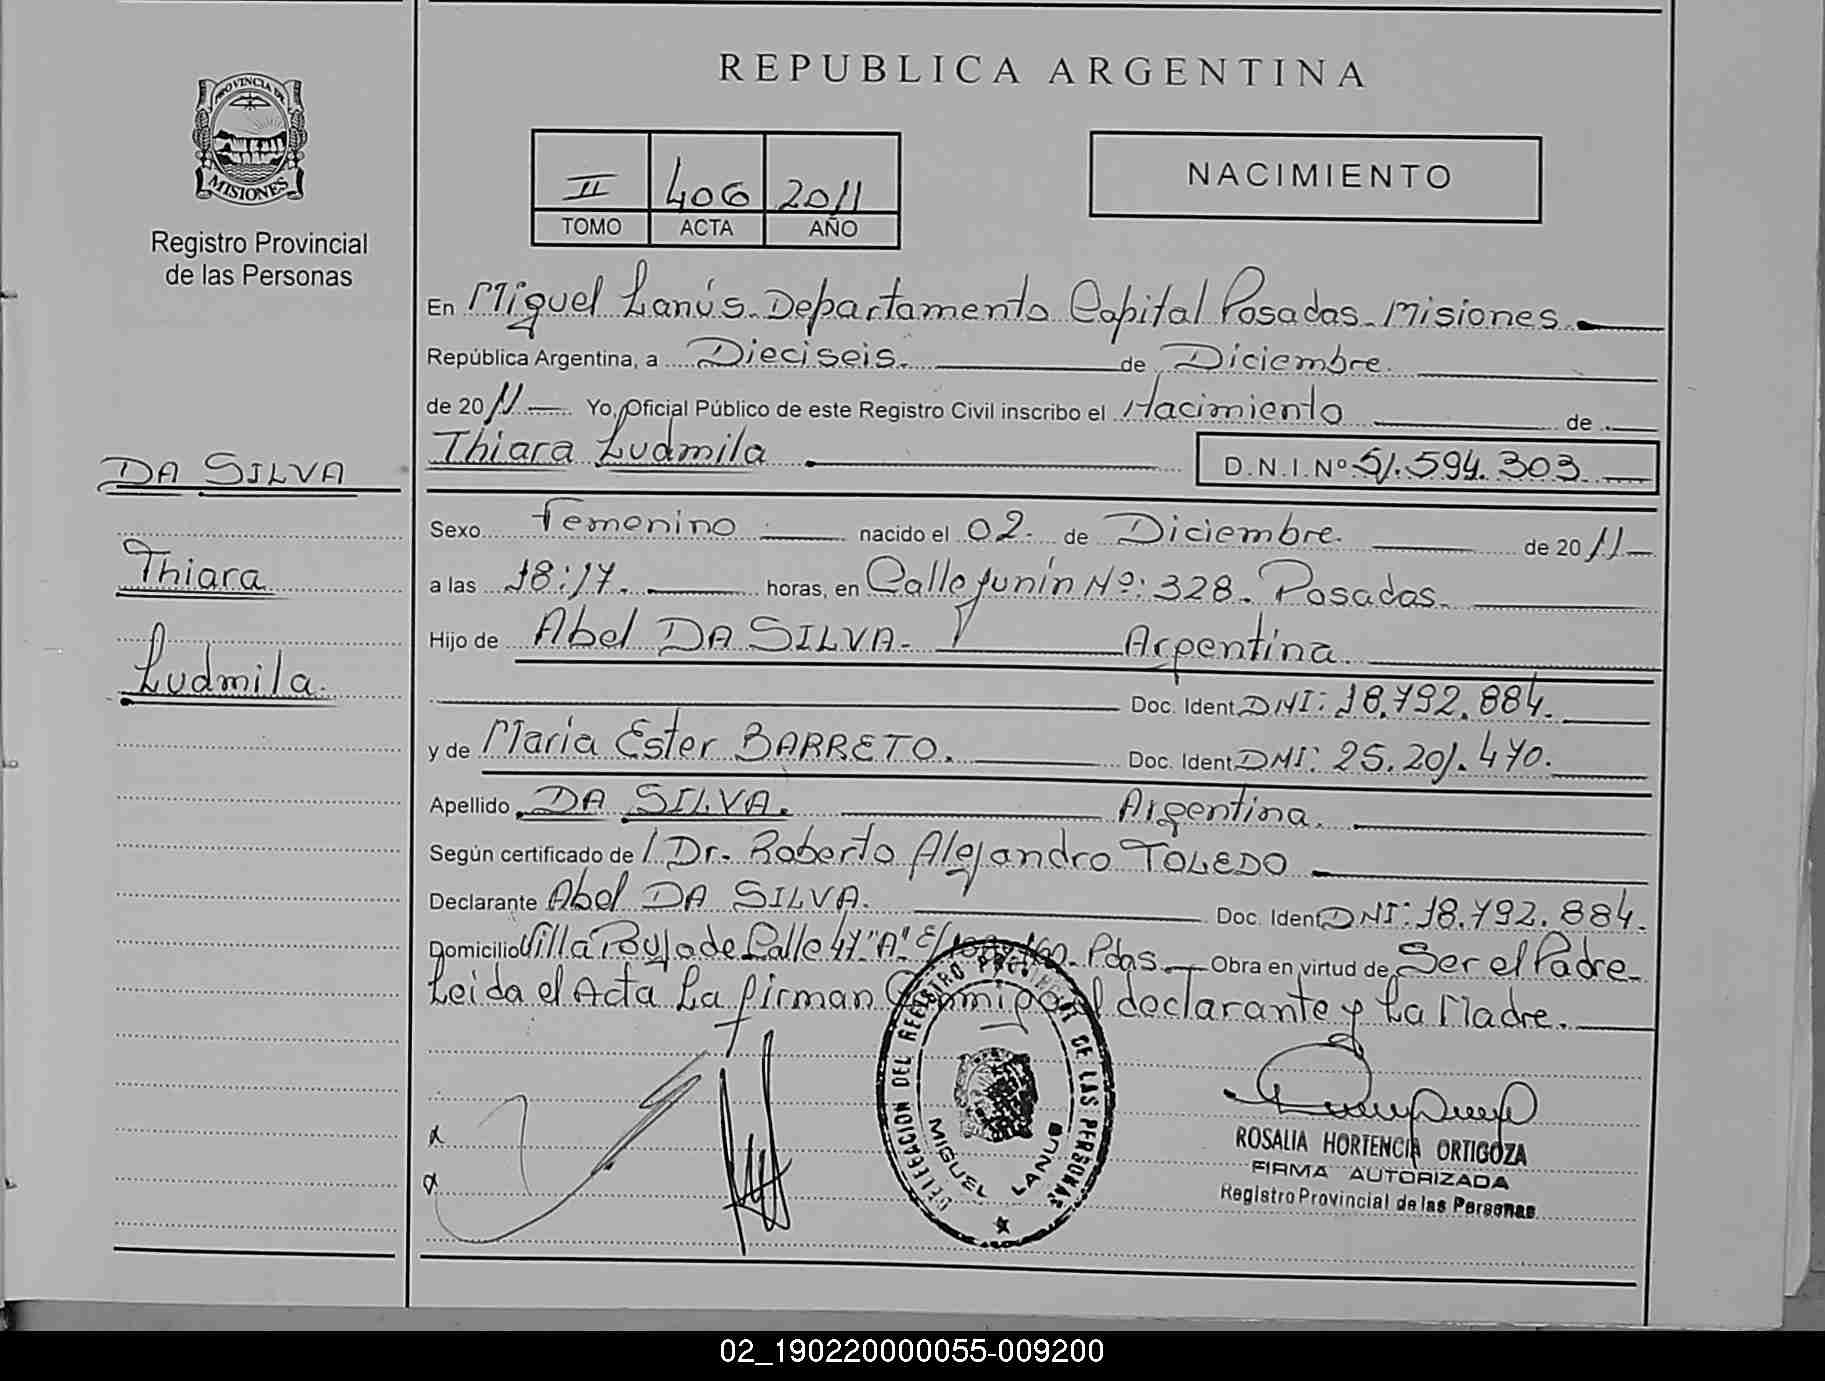 REPUBLICA ARGENTINA
PROVINCIA DE
MISIONES
Registro Provincial
de las Personas
II 406 2011
TOMO ACTA AÑO
NACIMIENTO
En Miguel Lanús. Departamento Capital Posadas. Misiones.
República Argentina, a Dieciseis. de Diciembre.
de 2011 Yo, Oficial Público de este Registro Civil inscribo el Nacimiento de
Thiara Ludmila D.N.I. Nº 51.594.303
DA SILVA
Thiara
Ludmila.
Sexo Femenino nacido el 02. de Diciembre. de 2011
a las 18:17. horas, en Calle Junín Nº: 328. Posadas.
Hijo de Abel DA SILVA. Argentina.
Doc. Ident. DNI: 18.792.884.
y de María Ester BARRETO. Doc. Ident. DNI: 25.201.470.
Apellido DA SILVA. Argentina.
Según certificado de Dr. Roberto Alejandro TOLEDO
Declarante Abel DA SILVA. Doc. Ident. DNI: 18.792.884.
Domicilio Villa Poujade Calle 47 "A" E/ Pdas. Obra en virtud de Ser el Padre.
Leida el Acta La firman Conmigo el declarante y La Madre.
DELEGACION DEL REGISTRO PROVINCIAL DE LAS PERSONAS
MIGUEL LANUS
ROSALIA HORTENCIA ORTIGOZA
FIRMA AUTORIZADA
Registro Provincial de las Personas
02_190220000055-009200